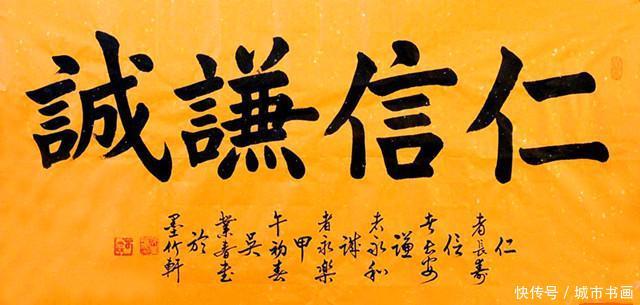 仁信謙誠
仁
者長壽
信
者長安
謙
者永和
誠
者永樂
甲
午初春
吳
業春書
於
墨竹軒
快传号/城市书画